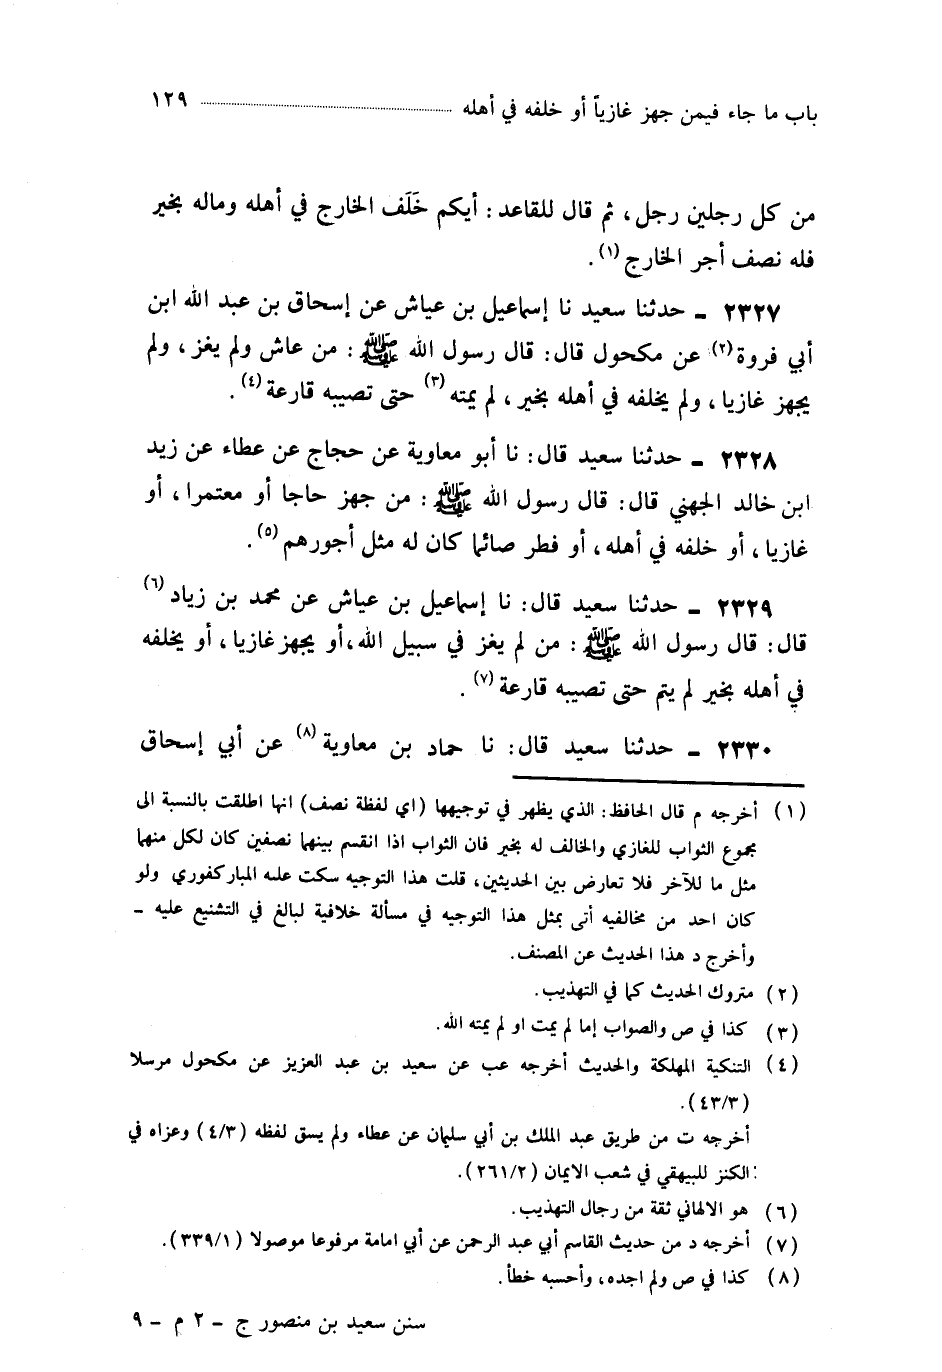 باب ما جاء فيمن جهز غازياً أو خلفه في أهله ١٢٩
من كل رجلين رجل، ثم قال للقاعد: أيكم خَلَف الخارج في أهله وماله بخير
فله نصف أجر الخارج (١).
٢٣٢٧ ـ حدثنا سعيد نا إسماعيل بن عياش عن إسحاق بن عبد الله ابن
أبي فروة (٢) عن مكحول قال: قال رسول الله ﷺ: من عاش ولم يغز، ولم
يجهز غازيا، ولم يخلفه في أهله بخير، لم يمته (٣) حتى تصيبه قارعة (٤).
٢٣٢٨ ـ حدثنا سعيد قال: نا أبو معاوية عن حجاج عن عطاء عن زيد
ابن خالد الجهني قال: قال رسول الله ﷺ: من جهز حاجا أو معتمرا، أو
غازيا، أو خلفه في أهله، أو فطر صائما كان له مثل أجورهم (٥).
٢٣٢٩ ـ حدثنا سعيد قال: نا إسماعيل بن عياش عن محمد بن زياد (٦)
قال: قال رسول الله ﷺ: من لم يغز في سبيل الله، أو يجهز غازيا، أو يخلفه
في أهله بخير لم يتم حتى تصيبه قارعة (٧).
٢٣٣٠ ـ حدثنا سعيد قال: نا حماد بن معاوية (٨) عن أبي إسحاق
(١) أخرجه م قال الحافظ: الذي يظهر في توجيهها (اي لفظة نصف) انها اطلقت بالنسبة الى
مجموع الثواب للغازي والخالف له بخير فان الثواب اذا انقسم بينهما نصفين كان لكل منهما
مثل ما للآخر فلا تعارض بين الحديثين، قلت هذا التوجيه سكت عليه المباركفوري ولو
كان احد من مخالفيه أتى بمثل هذا التوجيه في مسألة خلافية لبالغ في التشنيع عليه ـ
وأخرج د هذا الحديث عن المصنف.
(٢) متروك الحديث كما في التهذيب.
(٣) كذا في ص والصواب إما لم يمت او لم يمته الله.
(٤) التنكية المهلكة والحديث أخرجه عب عن سعيد بن عبد العزيز عن مكحول مرسلا
(٤٣/٣).
أخرجه ت من طريق عبد الملك بن أبي سليمان عن عطاء ولم يسق لفظه (٤/٣) وعزاه في
الكنز للبيهقي في شعب الايمان (٢٦١/٢).
(٦) هو الالهاني ثقة من رجال التهذيب.
(٧) أخرجه د من حديث القاسم أبي عبد الرحمن عن أبي امامة مرفوعا موصولا (٣٣٩/١).
(٨) كذا في ص ولم اجده، وأحسبه خطأ.
سنن سعيد بن منصور ج ـ ٢ م ـ ٩